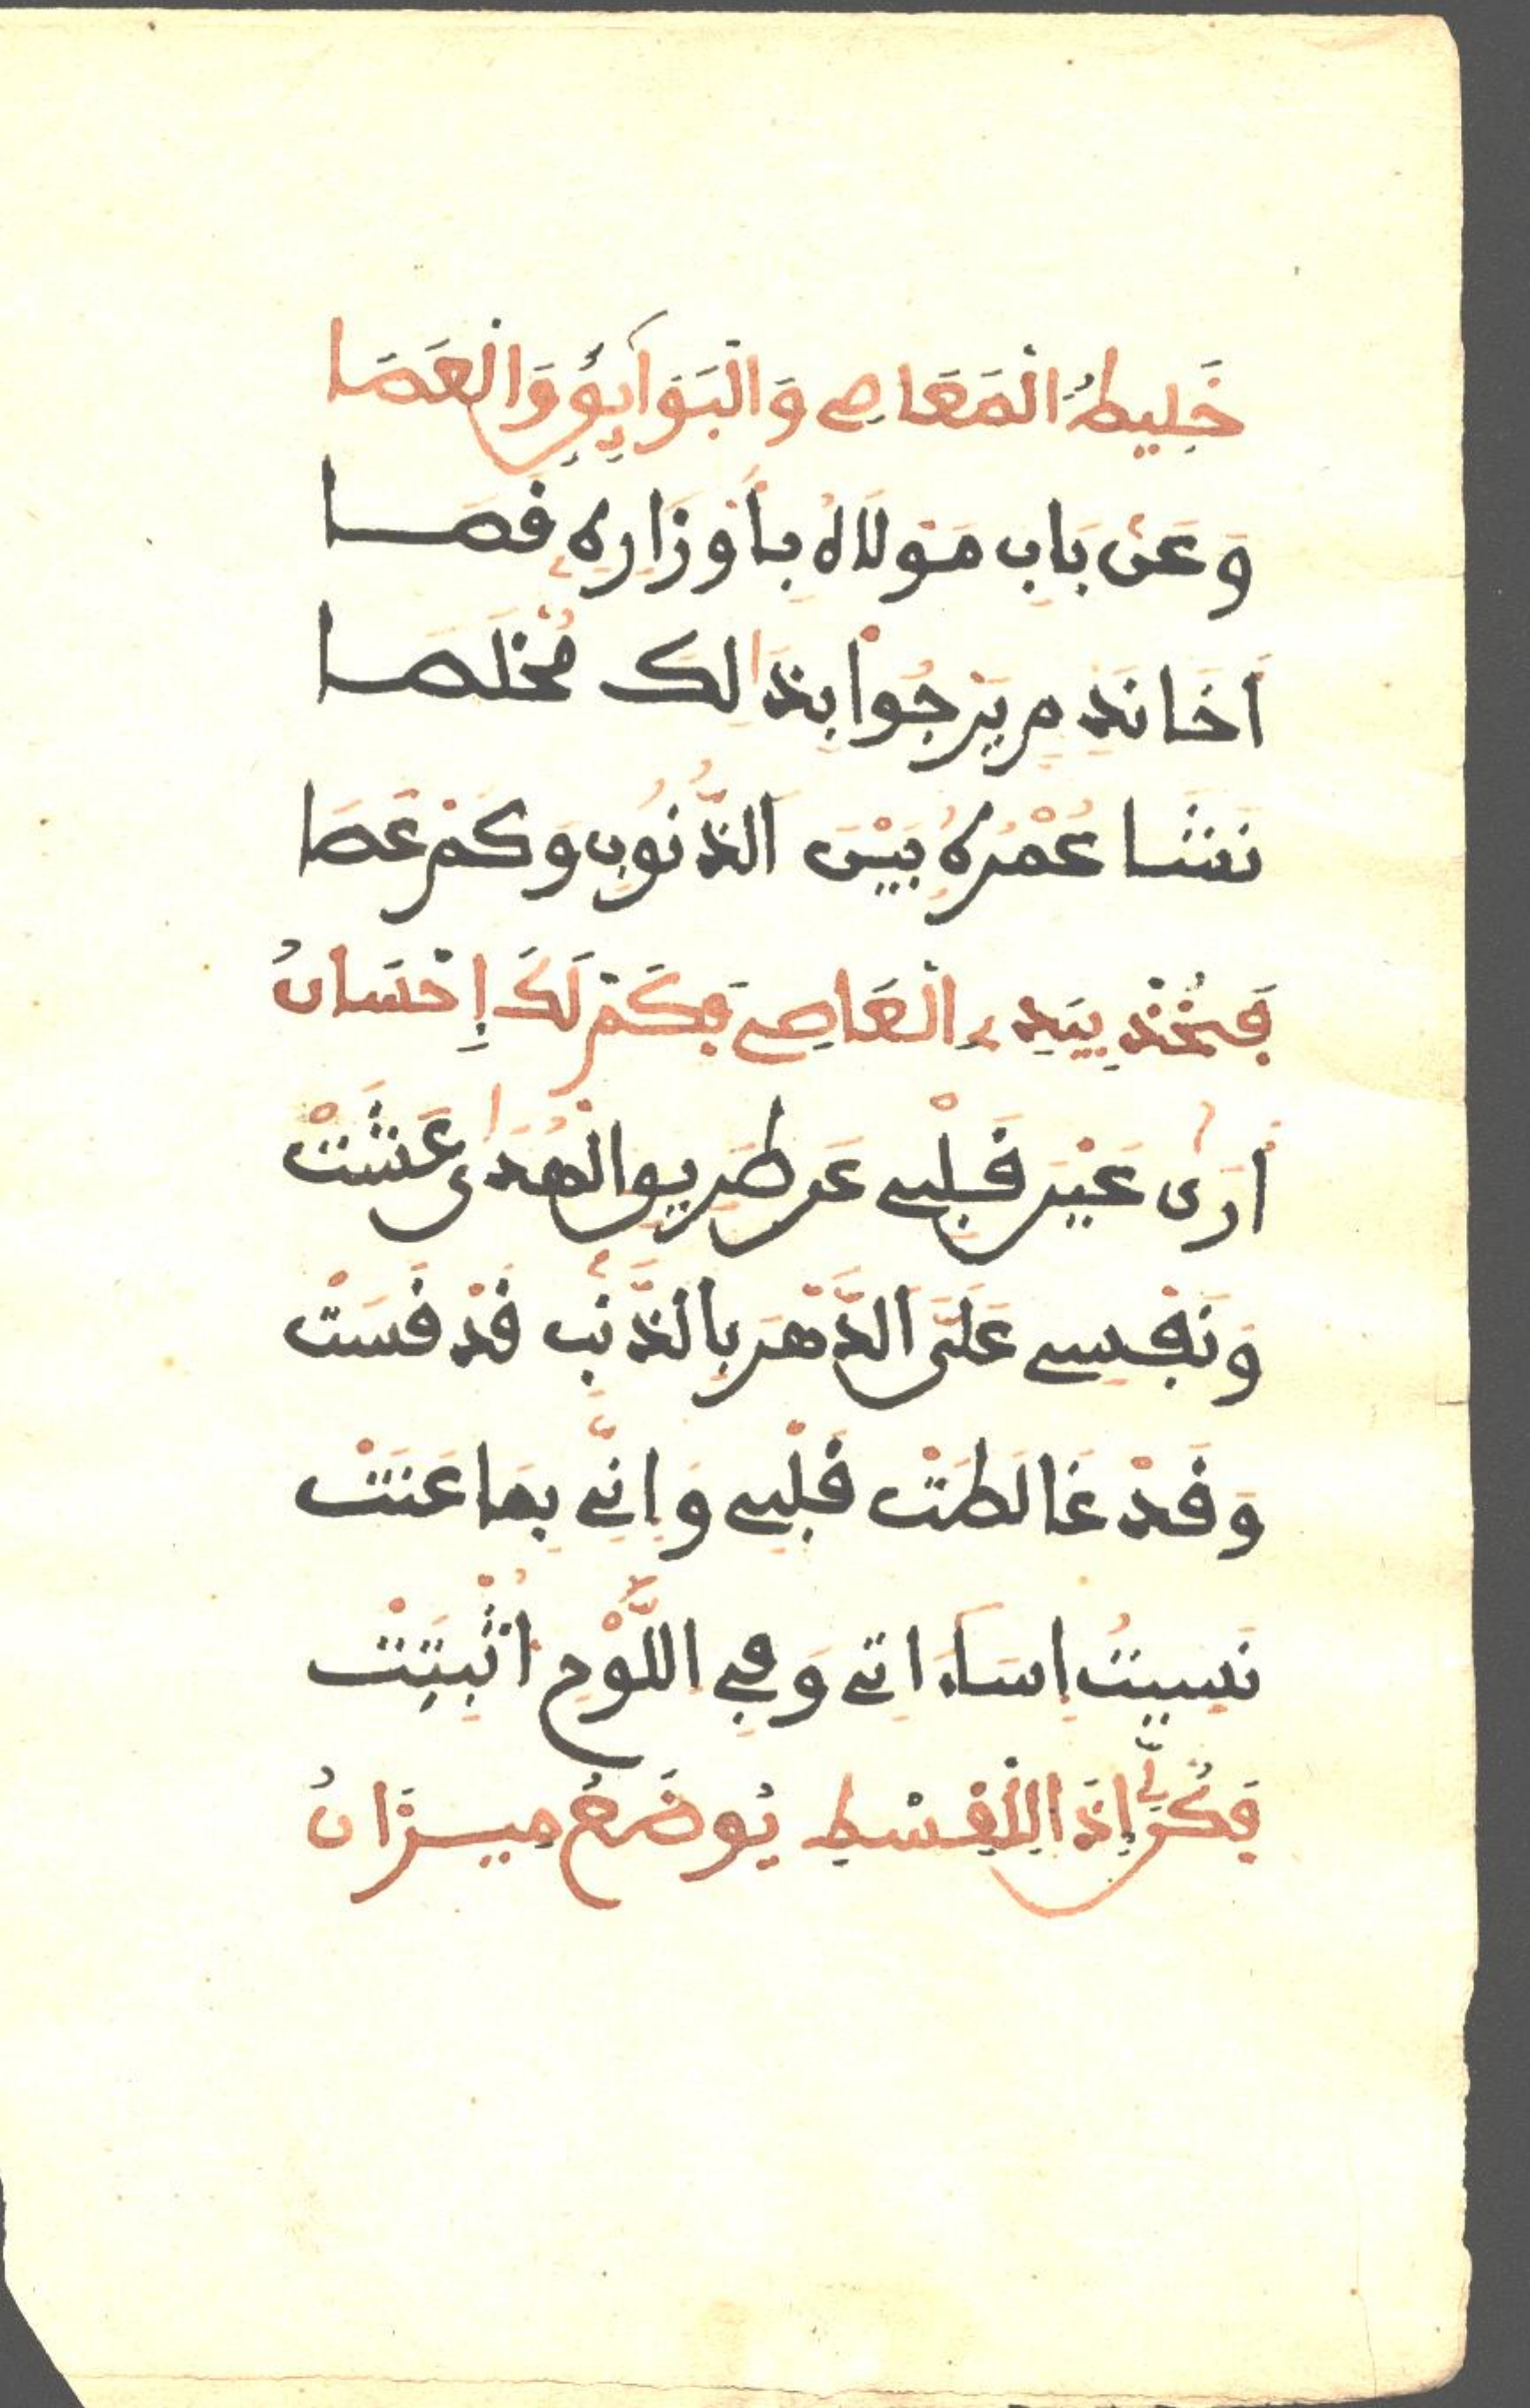 خَلِيطُ الْمَعَاصِي وَالْبَوَآئِقِ وَالْعَصَا
وَعَنْ بَابِ مَوْلَاهُ بِأَوْزَارِهِ قَصَا
أَخَا نَدَمٍ يَرْجُوا بِذَالِكَ مَخْلَصَا
نَشَا عُمْرُهُ بَيْنَ الذُّنُوبِ وَكَمْ عَصَا
فَخُذْ بِيَدِ الْعَاصِي فَكَمْ لَكَ إِحْسَانُ
أَرَى عَيْنَ قَلْبِي عَن طَرِيقِ الْهُدَى عَشَتْ
وَنَفْسِي عَلَى الدَّهْرِ بِالذَّنْبِ قَدْ قَسَتْ
وَقَدْ غَالَطَتْ قَلْبِي وَإِنِّي بِمَا عَنَتْ
نَسِيتُ إِسَاءَاتِي وَفِي اللَّوْحِ أُثْبِتَتْ
فَكُن لِّي إِذَا لِلْقِسْطِ يُوضَعُ مِيزَانُ